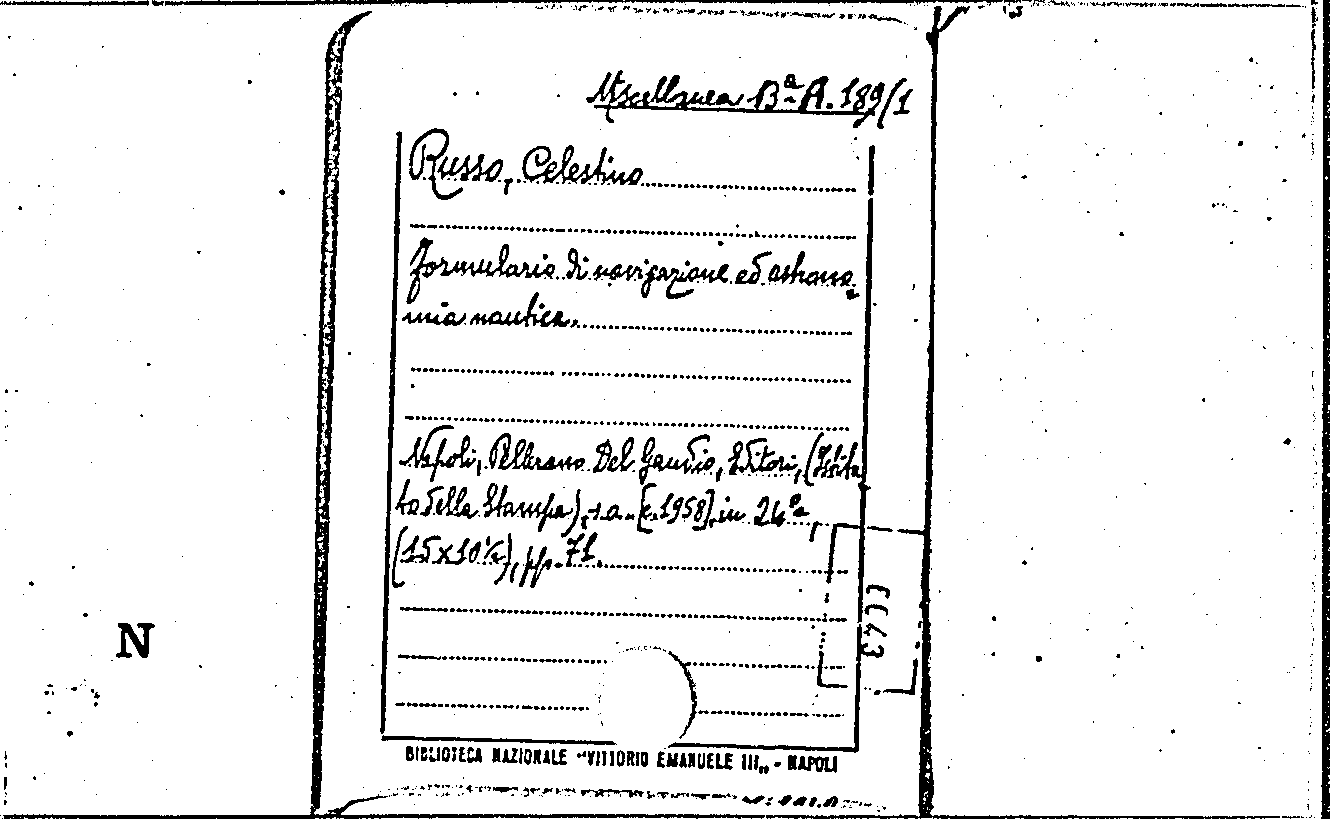 Miscellanea Bª A. 189/1
Russo, Celestino
Formulario di navigazione ed astrono-
mia nautica.
Napoli, Pellerano Del Gaudio, Editori, (Istitu-
to della Stampa), s.a. [c.1958], in 24°,
(15x10½), pp. 71.
N
BIBLIOTECA NAZIONALE "VITTORIO EMANUELE III„ - NAPOLI